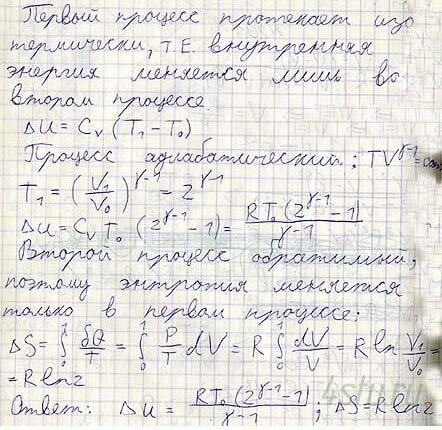 Первый процесс протекает изо
термически, т.е. внутренняя
энергия меняется лишь во
втором процессе.
ΔU = Cᵥ (T₁ - T₀)
Процесс адиабатический; TV^(γ-1) = con
T₁ = (V₁/V₀)^(γ-1) = 2^(γ-1)
ΔU = Cᵥ T₀ (2^(γ-1) - 1) = RT₀ (2^(γ-1) - 1) / (γ-1)
Второй процесс обратимый,
поэтому энтропия меняется
только в первом процессе:
ΔS = ∫₀¹ δQ/T = ∫₀¹ P/T dV = R ∫₀¹ dV/V = R ln V₁/V₀ =
= R ln2
Ответ: ΔU = RT₀ (2^(γ-1) - 1) / (γ-1) ; ΔS = R ln2
4stu.ru